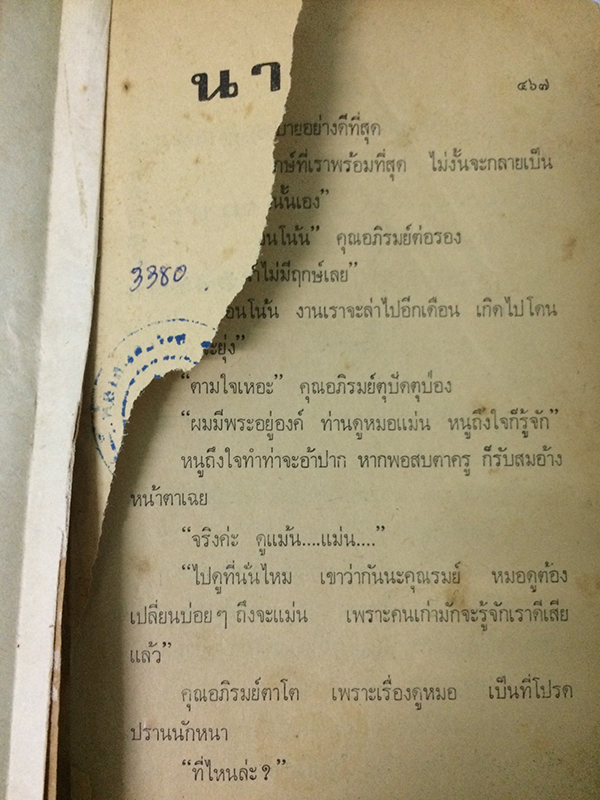 นา
๔๖๗
บายอย่างดีที่สุด
กษ์ที่เราพร้อมที่สุด ไม่งั้นจะกลายเป็น
นั้นเอง”
โน้น” คุณอภิรมย์ต่อรอง
3380
ไม่มีฤกษ์เลย”
อนโน้น งานเราจะล่าไปอีกเดือน เกิดไปโดน
ยุ่ง”
“ตามใจเหอะ” คุณอภิรมย์ตุปัดตุป่อง
“ผมมีพระอยู่องค์ ท่านดูหมอแม่น หนูถึงใจก็รู้จัก”
หนูถึงใจทำท่าจะอ้าปาก หากพอสบตาครู ก็รับสมอ้าง
หน้าตาเฉย
“จริงค่ะ ดูแม้น....แม่น....”
“ไปดูที่นั่นไหม เขาว่ากันนะคุณรมย์ หมอดูต้อง
เปลี่ยนบ่อยๆ ถึงจะแม่น เพราะคนเก่ามักจะรู้จักเราดีเสีย
แล้ว”
คุณอภิรมย์ตาโต เพราะเรื่องดูหมอ เป็นที่โปรด
ปรานนักหนา
“ที่ไหนล่ะ?”